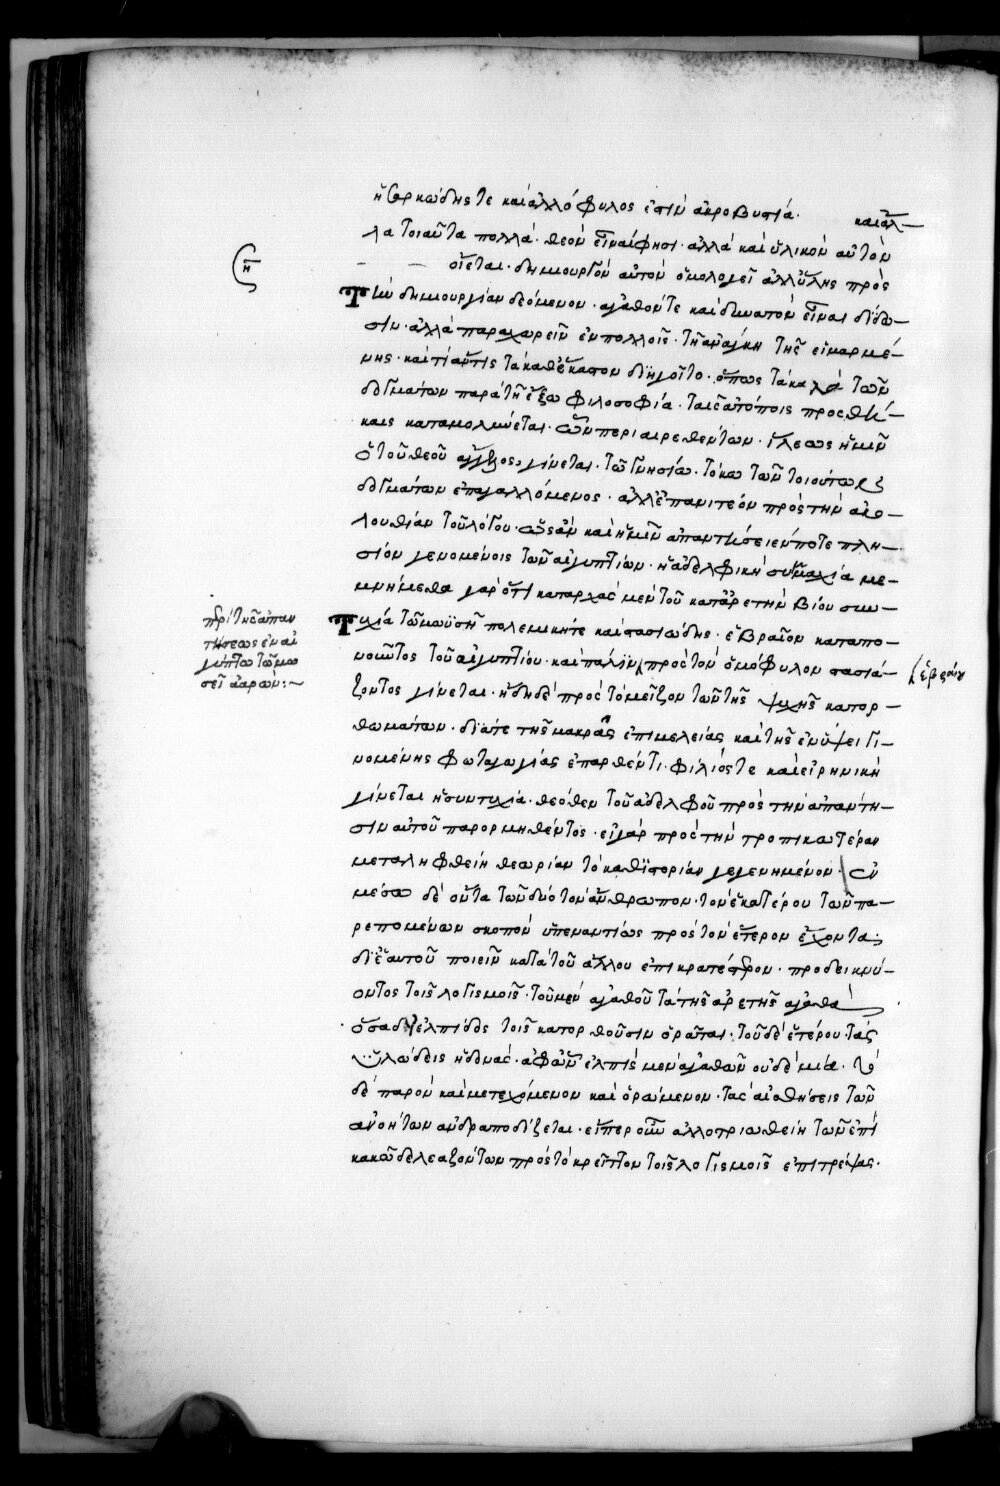 ἡ σαρκώδης τε καὶ ἀλλόφυλος ἐστὶν ἀκροβυστία. καὶ ἄλ-
λα τοιαῦτα πολλά. θεὸν εἶναί φησι. ἀλλὰ καὶ ὑλικὸν αὐτὸν
οἴεται. δημιουργὸν αὐτὸν ὁμολογεῖ ἀλλ' ὕλης πρὸς
τὴν δημιουργίαν δεόμενον. ἀγαθόν τε καὶ δυνατὸν εἶναι δίδω-
σιν. ἀλλὰ παραχωρεῖν ἐν πολλοῖς τῇ ἀνάγκῃ τῆς εἱμαρμέ-
νης. καὶ τί ἄν τις τὰ καθ' ἕκαστον διηγοῖτο. ὅπως τὰ καλὰ τῶν
δογμάτων παρὰ τῇ ἔξω φιλοσοφίᾳ. ταῖς ἀτόποις προσθή-
καις καταμολύνεται. ὧν περιαιρεθέντων. ἵλεως ἡμῖν
ὁ τοῦ θεοῦ ἄγγελος γίνεται. τῷ γνησίῳ τόκῳ τῶν τοιούτων
δογμάτων ἐπαγαλλόμενος. ἀλλ' ἐπανιτέον πρὸς τὴν ἀκο-
λουθίαν τοῦ λόγου. ὡς ἂν καὶ ἡμῖν ἀπαντήσειέν ποτε πλη-
σίον γενομένοις τῶν αἰγυπτίων. ἡ ἀδελφικὴ συμμαχία με-
μνήμεθα γὰρ ὅτι καταρχὰς μὲν τοῦ κατ' ἀρετὴν βίου συν-
τυχία τῷ μωϋσῇ πολεμική τε καὶ στασιώδης. ἑβραῖον καταπο-
νοῦντος τοῦ αἰγυπτίου. καὶ πάλιν πρὸς τὸν ὁμόφυλον στασιά-
ζοντος γίνεται. ἤδη δὲ πρὸς τὸ μεῖζον τῶν τῆς ψυχῆς κατορ-
θωμάτων. διά τε τῆς μακρᾶς ἐπιμελείας καὶ τῆς ἐν ὕψει γι-
νομένης φωταγωγίας ἐπαρθέντι. φιλιός τε καὶ εἰρηνικὴ
γίνεται ἡ συντυχία. θεόθεν τοῦ ἀδελφοῦ πρὸς τὴν ἀπάντη-
σιν αὐτοῦ παρορμηθέντος. εἰ γὰρ πρὸς τὴν τροπικωτέραν
μεταληφθείη θεωρίαν τὸ καθ' ἱστορίαν γεγενημένον.
μέσῳ δὲ ὄντα τῶν δύο τὸν ἄνθρωπον. τὸν ἑκατέρου τῶν πα-
ρεπομένων σκοπὸν ὑπεναντίως πρὸς τὸν ἕτερον ἔχοντα.
δι' ἑαυτοῦ ποιεῖν κατὰ τοῦ ἄλλου ἐπικρατέστερον. προδεικνύ-
οντος τοῖς λογισμοῖς. τοῦ μὲν ἀγαθοῦ τὰ τῆς ἀρετῆς ἀγαθὰ
ὅσα δι' ἐλπίδος τοῖς κατορθοῦσιν ὁρᾶται. τοῦ δὲ ἑτέρου τὰς
ὑλώδεις ἡδονάς. ἀφ' ὧν ἐλπὶς μὲν ἀγαθῶν οὐδεμία. τὸ
δὲ παρὸν καὶ μετεχόμενον καὶ ὁρώμενον. τὰς αἰσθήσεις τῶν
ἀνοήτων ἀνδραποδίζεται. εἴπερ οὖν ἀλλοτριωθείη τῶν ἐπὶ
κακῷ δελεαζόντων πρὸς τὸ κρεῖττον τοῖς λογισμοῖς ἐπιτρέψας.
η
περὶ τῆς ἀπαν
τήσεως ἐν αἰ
γύπτῳ τῷ μω
σεῖ ἀαρών:~
ἑβραίου